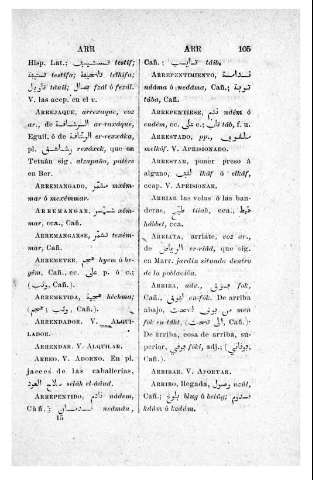 ARR
ARR
105
Hisp. Lat.; تستيف testíf;
تستيفة testifa; تلحيفة telhífa;
تاويل táuil; فصال fzál ó fezál.
V. las acep. en el v.
ARREZAQUE, arrexaque, voz
ar., de الرشاقة ar-raxáque,
Eguil. ó de الرشاقة ar-rexxáka,
pl. رشاقش rexáxek, que en
Tetuán sig. alzapaño, palére
en Ber.
ARREMANGADO, مشمّر mxémmar
ó mexémmar.
ARREMANGAR, شمّر xémmar,
cca., Cañ.
ARREMANGARSE, تشمّر texémmar,
Cañ.
ARREMETER, هجم hyem ó hegém,
Cañ., cc. على p. ó c.;
(وثب, Cañ.).
ARREMETIDA, هجمة héchma;
(هجم; وثوب, Cañ.).
ARRENDADOR. V. ALQUILADOR.
ARRENDAR. V. ALQUILAR.
ARREO. V. ADORNO. En pl.
jaeces de las caballerías,
سلاح العود seláh el-áâud.
ARREPENTIDO, نادم nádem,
Cañ.; ندمان nedmán,
15
Cañ.; تايب táib,
ARREPENTIMIENTO, ندامة
ndáma ó nedáma, Cañ.; توبة
tóba, Cañ.
ARREPENTIRSE, ندم ndém ó
nadem, cc. على c.; تاب táb, f. u.
ARRESTADO, pp., ملقوف
melkúf. V. APRISIONADO.
ARRESTAR, poner preso á
alguno, لقف lkáf ó elkáf,
ccap. V. APRISIONAR.
ARRIAR las velas ó las banderas,
طيّح tíiah, cca., هبّط
hábbet, cca.
ARRIATA, arriáte, voz ar.,
de الرياض er-riád, que sig.
en Marr. jardín situado dentro
de la población.
ARRIBA, adv., فوق fok,
Cañ., الفوق el-fók. De arriba
abajo, من فوق لتحت men
fók ta-táht, (الى تحت, Cañ.).
De arriba, cosa de arriba, superior,
فوقي fókí, adj.; (فوقاني,
Cañ.).
ARRIBAR. V. APORTAR.
ARRIBO, llegada, وصول uzúl,
Cañ.; بلوغ blug ó belúg; قدوم
kdóm ó kudóm.